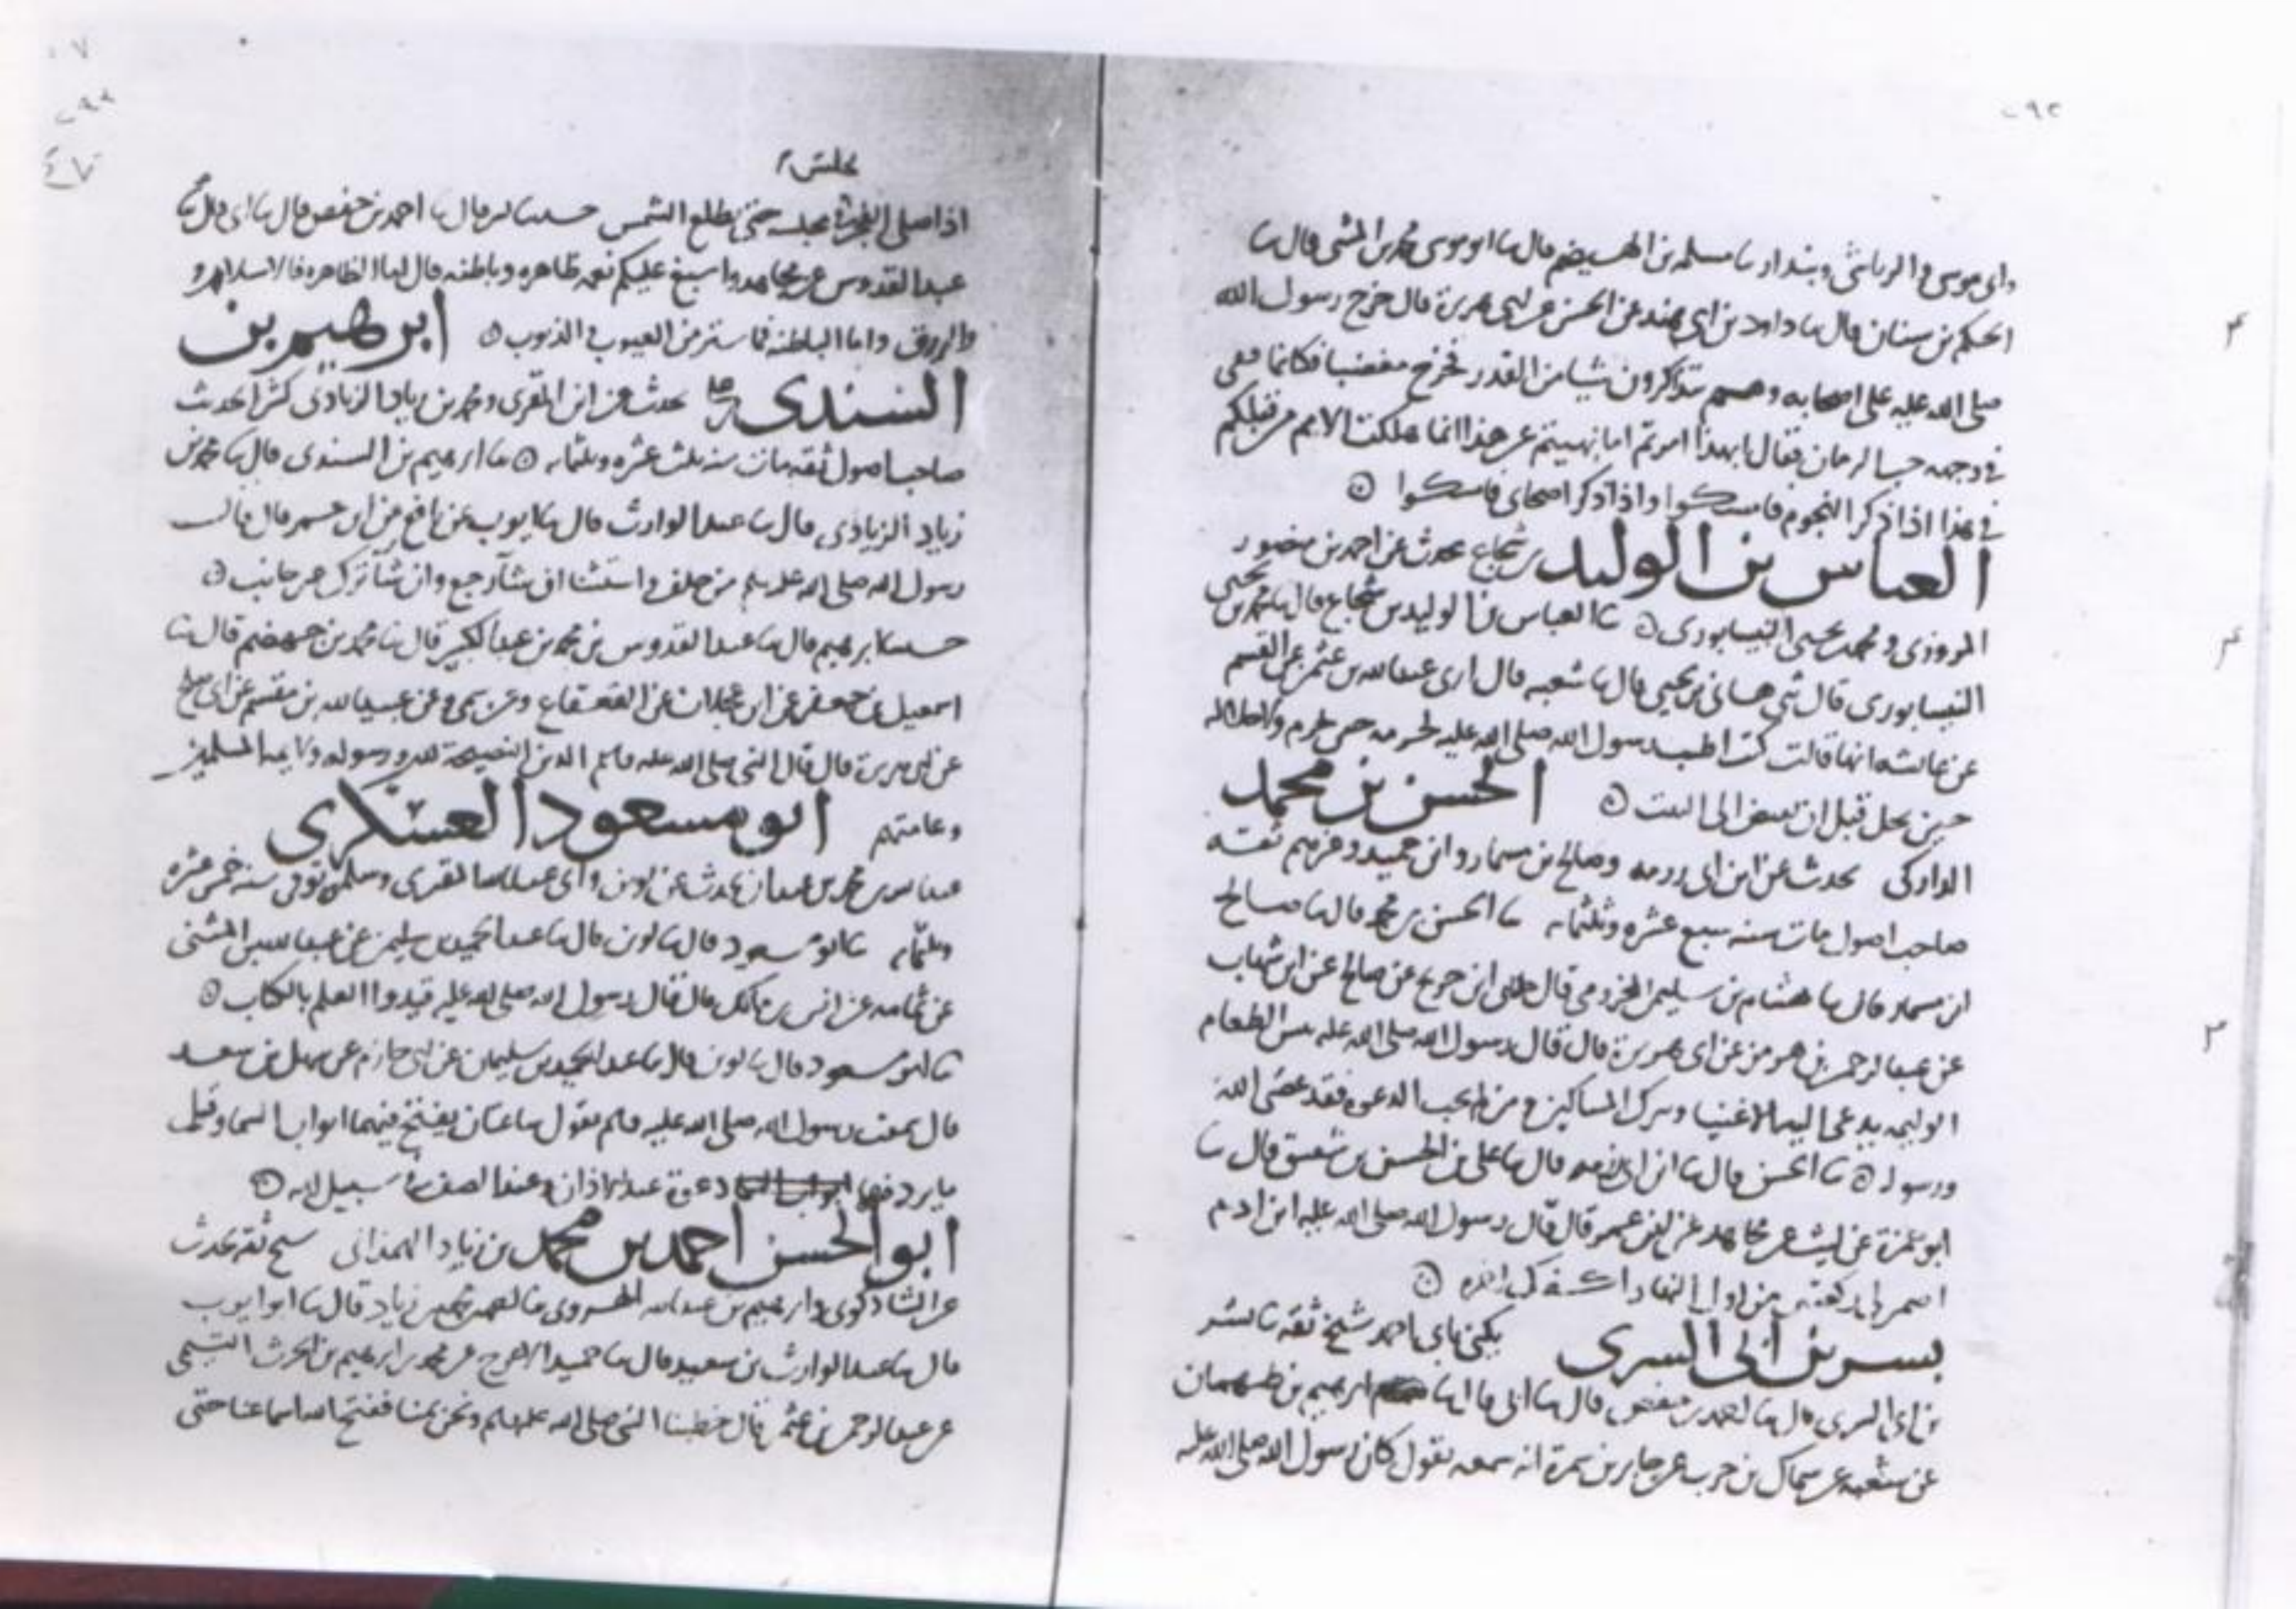 وابي موسى والرياشي وبندار ثنا مسلمة بن الهيضم قال ثنا ابو موسى محمد بن المثنى قال ثنا
الحكم بن سنان قال ثنا داود بن ابي هند عن الحسن عن ابي هريرة قال خرج رسول الله
صلى الله عليه على اصحابه وهم يتذاكرون شيا من القدر فخرج مغضبا فكانما فقى
في وجهه حب الرمان فقال ابهذا امرتم اما نهيتم عن هذا انما هلكت الامم من قبلكم
في هذا اذا ذكر النجوم فامسكوا واذا ذكر اصحابي فامسكوا
العباس بن الوليد بن شجاع يحدث عن احمد بن منصور
المروزي ومحمد بن يحيى النيسابوري ثنا العباس بن الوليد بن شجاع قال ثنا محمد بن يحيى
النيسابوري قال ثني هانى بن يحيى قال ثنا شعبه قال ارى عبد الله بن عثمن عن القسم
عن عائشه انها قالت كنت اطيب رسول الله صلى الله عليه لحرمه حين يحرم ولاحلاله
حين يحل قبل ان يفيض الى البيت الحسن بن محمد
الداركي يحدث عن ابن ابي رزمه وصالح بن مسمار وابن حميد وغيرهم ثقة
صاحب اصول مات سنه سبع عشره وثلثمايه ثنا الحسن بن محمد قال ثنا صالح
ابن مسمار قال ثنا هشام بن سليمن المخزومي قال حدثني ابن جريج عن صالح عن ابن شهاب
عن عبد الرحمن بن هرمز عن ابي هريرة قال قال رسول الله صلى الله عليه بئس الطعام
الوليمه يدعى اليها الاغنيا ويترك المساكين ومن لم يجب الدعوه فقد عصى الله
ورسوله ثنا الحسن قال ثنا ابن ابي رزمه قال ثنا علي بن الحسن بن شقيق قال ثنا
ابو حمزة عن ليث عن مجاهد عن ابن عمر قال قال رسول الله صلى الله عليه ابن ادم
اضمن لي ركعتين من اول النهار اكفك اخره
بسر بن ابي السري يكنى بابي احمد شيخ ثقه ثنا بسر
بن ابي السري قال ثنا احمد بن حفص قال ثنا ابي قال ثنا ابرهيم بن طهمان
عن شعبه عن سماك بن حرب عن جابر بن سمرة انه سمعه يقول كان رسول الله صلى الله عليه
اذا صلى الفجر في مجلسه حتى تطلع الشمس حدثنا بسر قال ثنا احمد بن حفص قال ثنا ابي قال ثنا
عبد القدوس عن مجاهد واسبغ عليكم نعمه ظاهره وباطنه قال اما الظاهره فالاسلام و
والرزق واما الباطنه فما ستر من العيوب والذنوب ابرهيم بن
السندي يحدث عن ابن المقرى ومحمد بن زياد الزيادي كثير الحديث
صاحب اصول ثقه مات سنه ثلث عشره وثلثمايه ثنا ابرهيم بن السندي قال ثنا محمد بن
زياد الزيادي قال ثنا عبد الوارث قال ثنا ايوب عن نافع عن ابن عمر قال قال
رسول الله صلى الله عليه وسلم من حلف واستثنا ان شآ رجع وان شآ ترك غير حانث
حدثنا ابرهيم قال ثنا عبد القدوس بن محمد بن عبد الكبير قال ثنا محمد بن جهضم قال ثنا
اسمعيل بن جعفر عن ابن عجلان عن القعقاع وعن سمي وعن عبيد الله بن مقسم عن ابي صلح
عن ابي هريرة قال قال النبي صلى الله عليه وسلم الدين النصيحة لله ورسوله ولايمه المسلمين
وعامتهم ابو مسعود العسكري
محمد بن عبدان يحدث عن لوين وابي عبد الله المقرى وسلمة توفى سنه خمس عشره
وثلثمايه ثنا ابو مسعود قال ثنا لوين قال ثنا عبد الحميد بن سليمن عن عبد الله بن المثنى
عن ثمامه عن انس بن مالك قال قال رسول الله صلى الله عليه قيدوا العلم بالكتاب
ثنا ابو مسعود قال ثنا لوين قال ثنا عبد الحميد بن سليمان عن ابي حازم عن سهل بن سعد
قال سمعت رسول الله صلى الله عليه وسلم يقول ساعتان يفتح فيهما ابواب السما وقل
ما يرد فيها دعوة عند الاذان وعند الصف في سبيل الله
ابو الحسن احمد بن محمد بن زياد الهمذاني شيخ ثقه يحدث
عن الشاذكوني وابرهيم بن عبد الله الهروي زياد قال ثنا ابو ايوب
قال ثنا عبد الوارث بن سعيد قال ثنا حميد الاعرج عن محمد بن ابرهيم بن الحرث التيمي
عن عبد الرحمن بن عثمن قال خطبنا النبي صلى الله عليه وسلم ونحن بمنا ففتح الله اسماعنا حتى